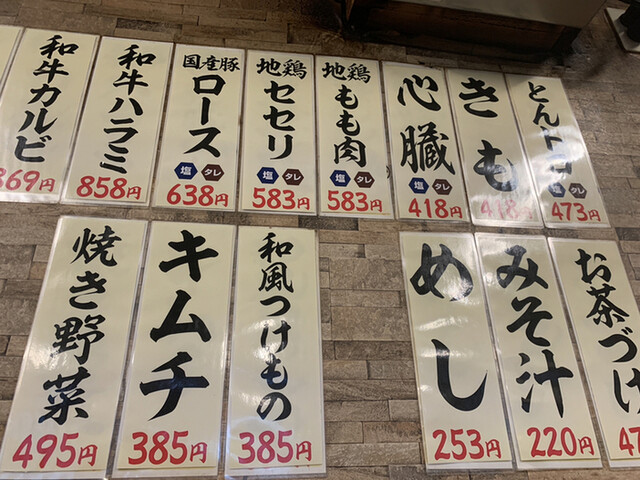 和牛カルビ
869円
和牛ハラミ
858円
国産豚
ロース
塩 タレ
638円
地鶏
セセリ
塩 タレ
583円
地鶏
もも肉
塩 タレ
583円
心臓
塩 タレ
418円
きも
418円
とんトロ
塩 タレ
473円
焼き野菜
495円
キムチ
385円
和風つけもの
385円
めし
253円
みそ汁
220円
お茶づけ
47